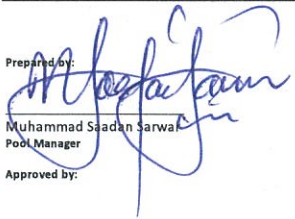 Prepared by:
Muhammad Saadan Sarwar
Pool Manager
Approved by: